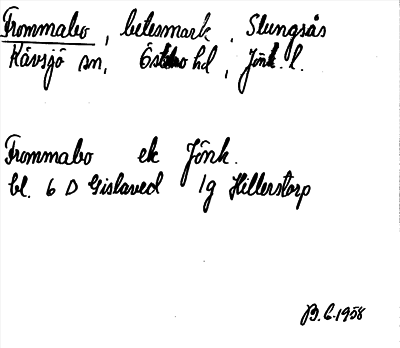 Frommabo, betesmark, Slungsås
Kävsjö sn, Östbo hd, Jönk. l.
Frommabo ek Jönk.
bl. 6 D Gislaved 1g Hillerstorp
B. C. 1958